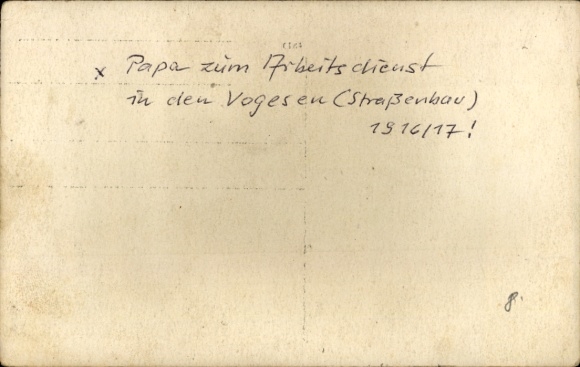 x Papa zum Arbeitsdienst
in den Vogesen (Straßenbau)
1916/17!
8.